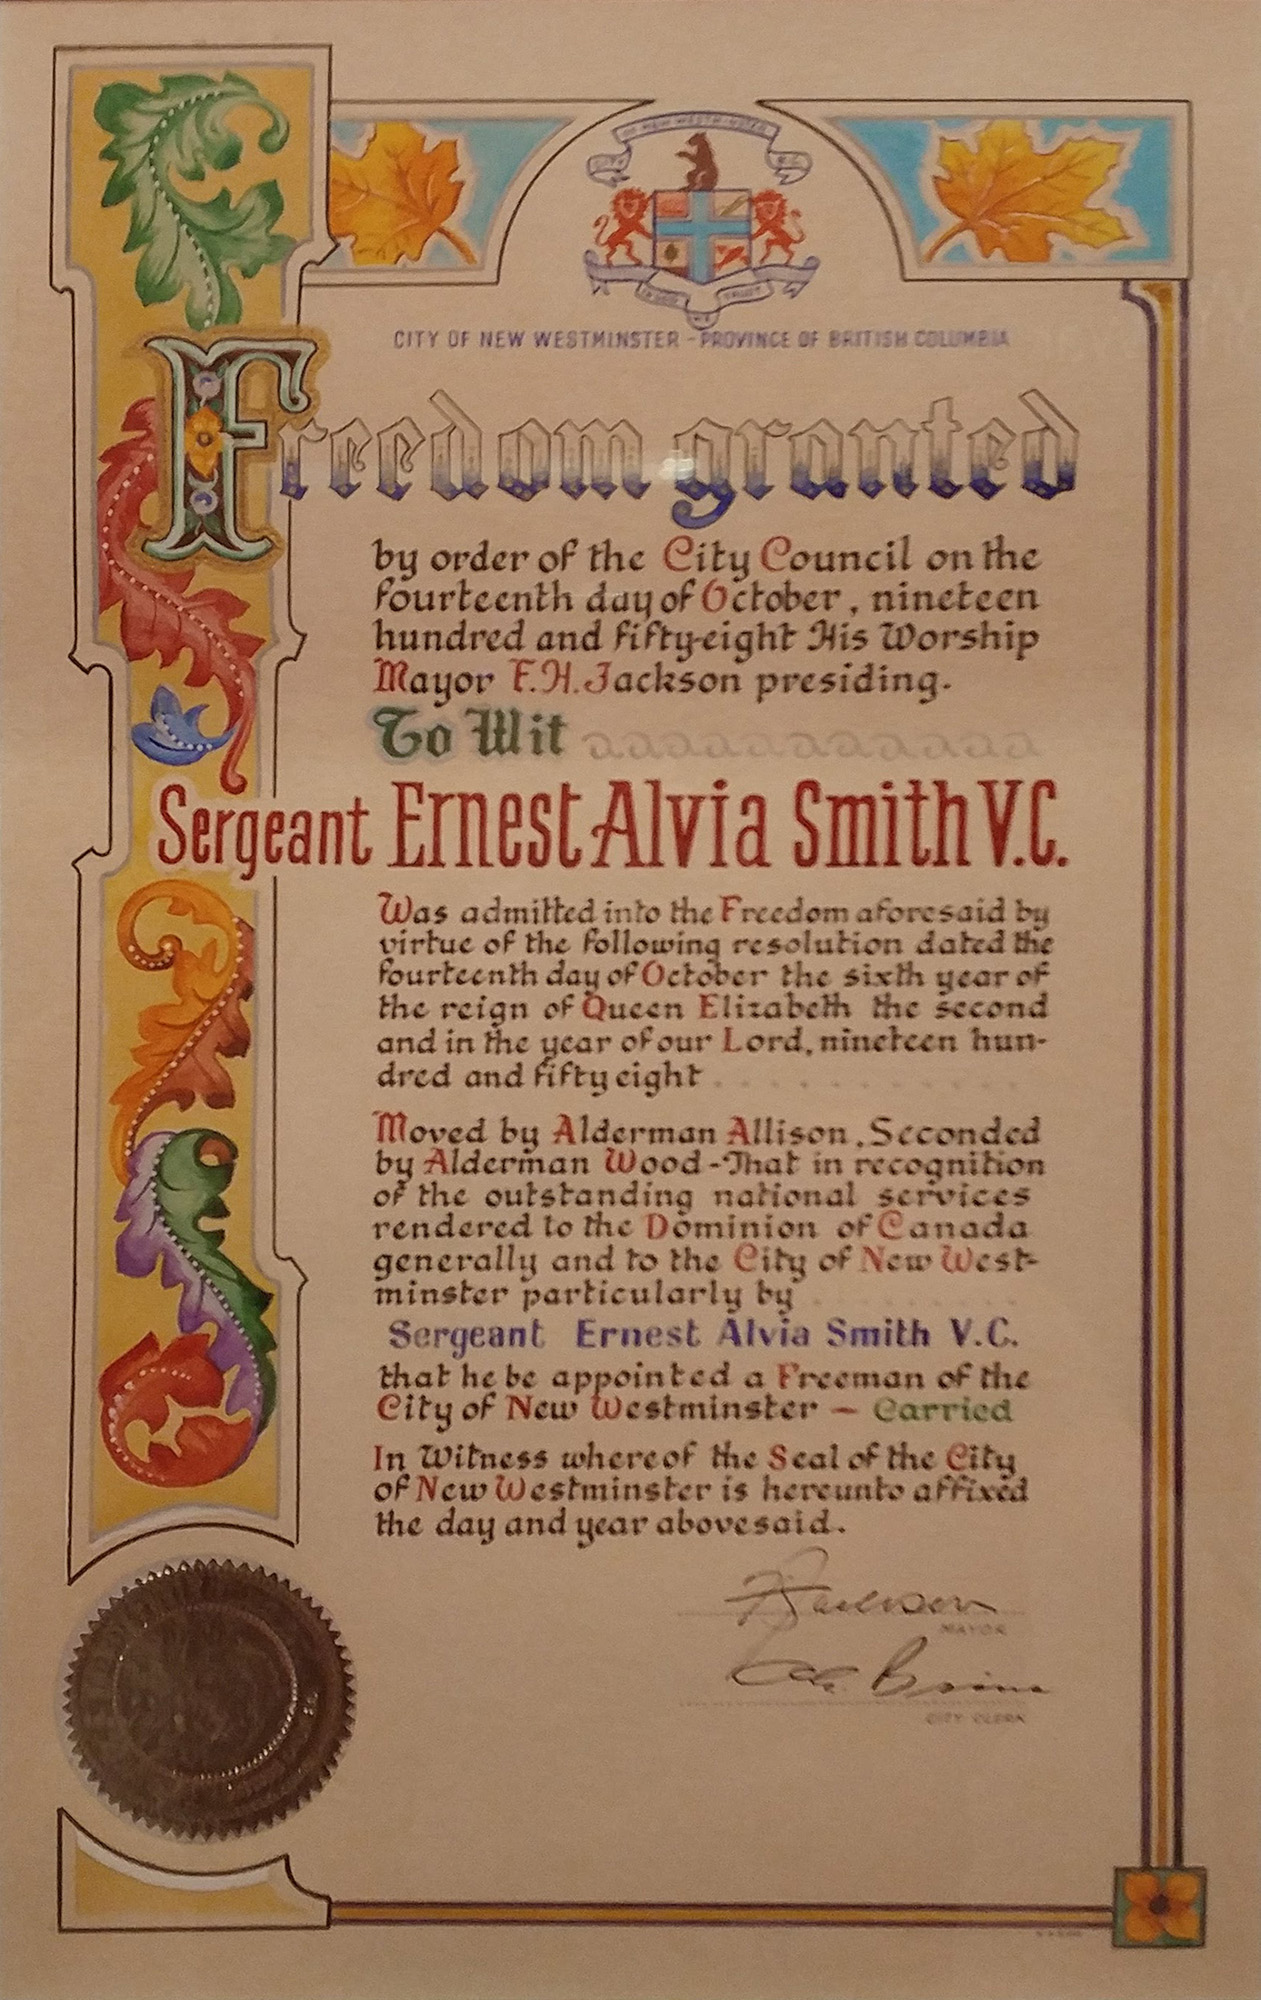 CITY OF NEW WESTMINSTER B.C.
IN GOD WE TRUST
CITY OF NEW WESTMINSTER - PROVINCE OF BRITISH COLUMBIA
Freedom granted
by order of the City Council on the
fourteenth day of October, nineteen
hundred and fifty-eight His Worship
Mayor F.H. Jackson presiding.
To Wit
Sergeant Ernest Alvia Smith V.C.
Was admitted into the Freedom aforesaid by
virtue of the following resolution dated the
fourteenth day of October the sixth year of
the reign of Queen Elizabeth the second
and in the year of our Lord, nineteen hun-
dred and fifty eight . . . . . . . . . . .
Moved by Alderman Allison, Seconded
by Alderman Wood - That in recognition
of the outstanding national services
rendered to the Dominion of Canada
generally and to the City of New West-
minster particularly by . . . . . . . . .
Sergeant Ernest Alvia Smith V.C.
that he be appointed a Freeman of the
City of New Westminster - Carried
In Witness whereof the Seal of the City
of New Westminster is hereunto affixed
the day and year abovesaid.
F Jackson
MAYOR
CITY CLERK